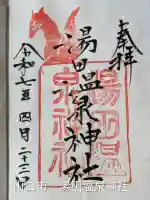 奉拝
湯田温泉神社
湯田温
泉神社
令和七年 四月二十二日
山口市 湯田温泉神社